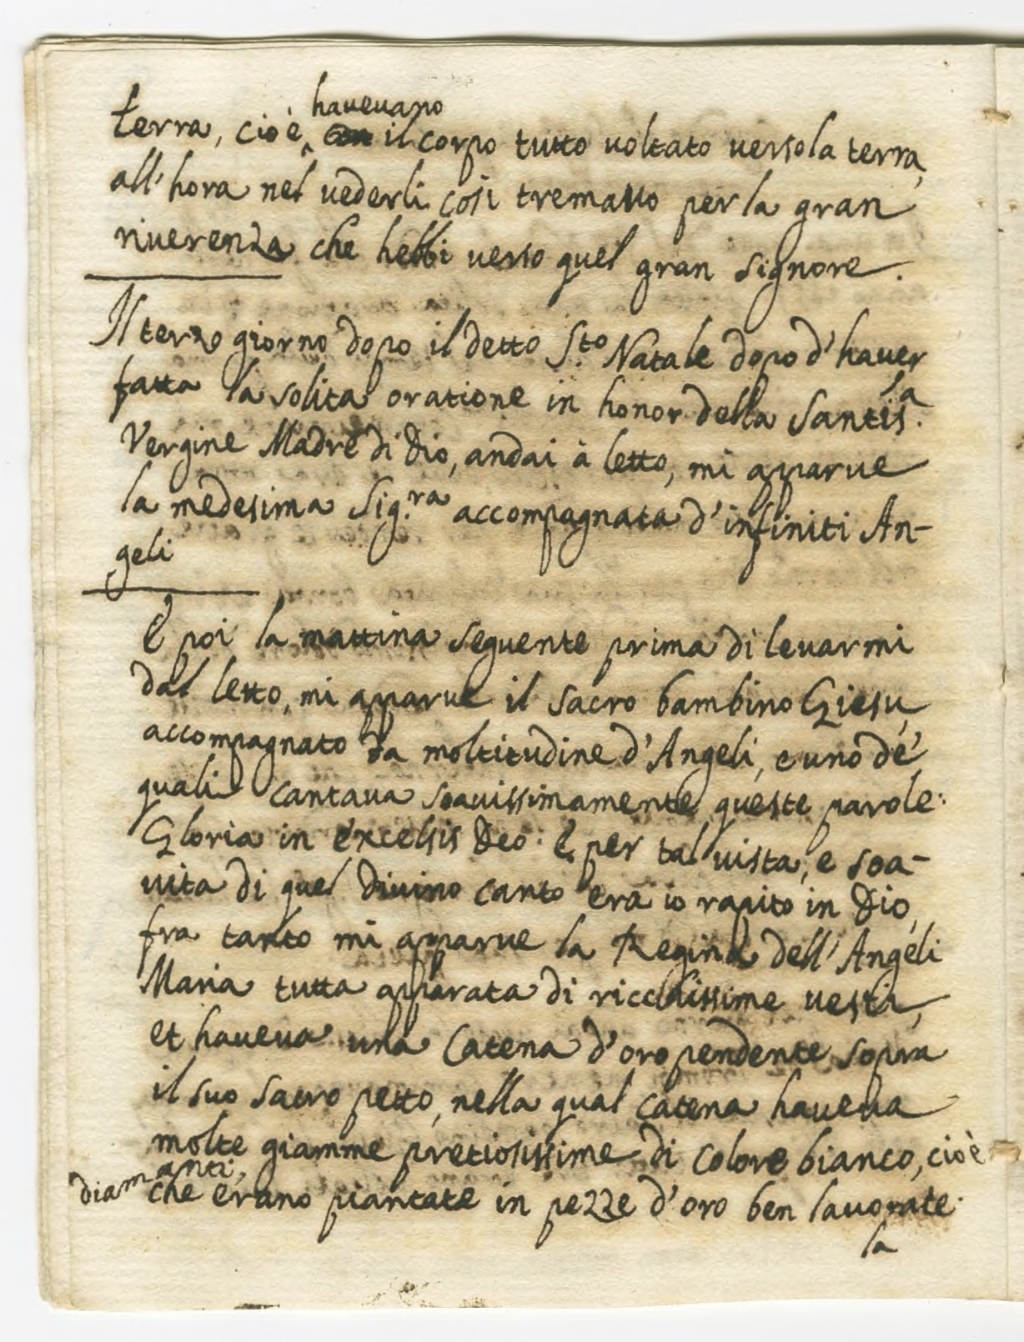 havevano
terra, cioè, il corpo tutto voltato verso la terra,
all'hora nel vederli così tremavo per la gran
riverenza che hebbi verso quel gran signore.
Il terzo giorno dopo il detto S.to Natale dopo d'haver
fatta la solita oratione in honor della Santis.a
Vergine Madre di Dio, andai à letto, mi apparve
la medesima Sig.ra accompagnata d'infiniti An-
geli
E poi la mattina seguente prima di levarmi
dal letto, mi apparve il sacro bambino Giesù,
accompagnato da moltitudine d'Angeli, e uno de'
quali cantava soavissimamente queste parole:
Gloria in excelsis Deo. E per tal vista, e soa-
vita di quel Divino canto era io rapito in Dio,
fra tanto mi apparve la Regina dell'Angeli
Maria tutta apparata di ricchissime vesti,
et haveva una Catena d'oro pendente sopra
il suo sacro petto, nella qual catena haveva
molte giamme pretiosissime di colore bianco, cioè
diamanti,
che erano piantate in pezze d'oro ben lavorate.
la